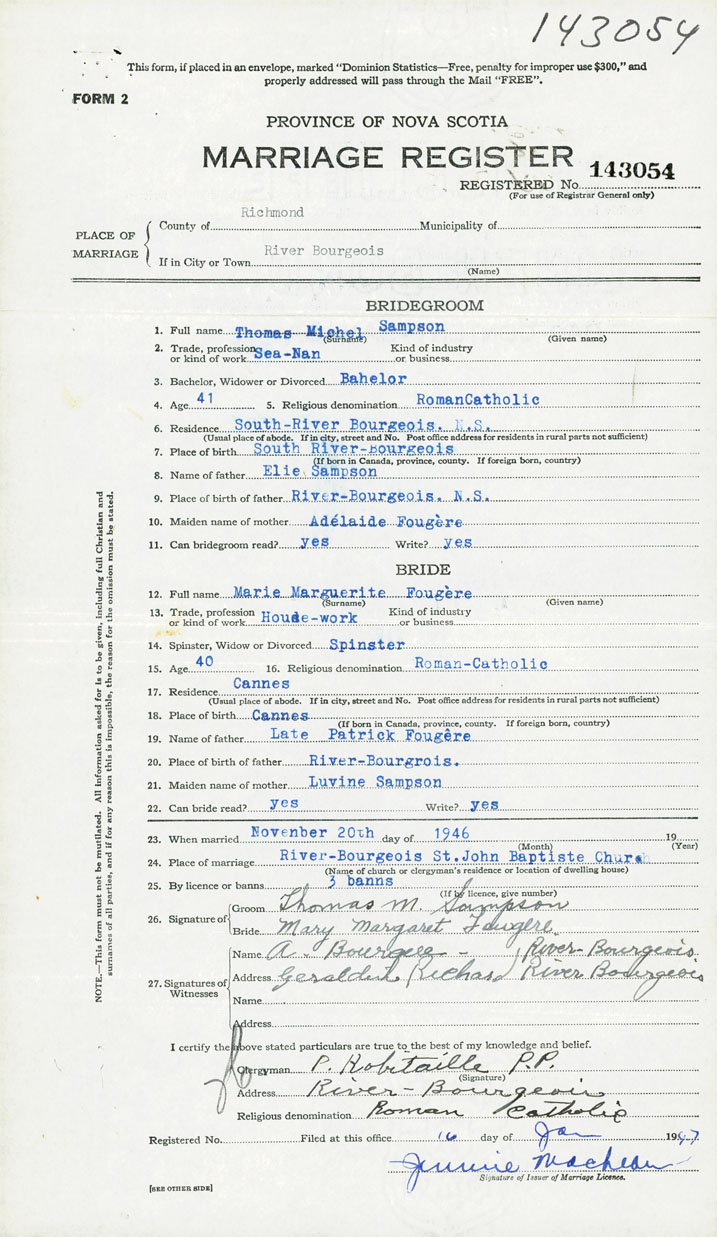 143054
This form, if placed in an envelope, marked "Dominion Statistics—Free, penalty for improper use $300," and
properly addressed will pass through the Mail "FREE".
FORM 2
PROVINCE OF NOVA SCOTIA
MARRIAGE REGISTER 143054
REGISTERED No.
(For use of Registrar General only)
PLACE OF MARRIAGE
County of Richmond Municipality of
If in City or Town River Bourgeois
(Name)
BRIDEGROOM
1. Full name Thomas Michel Sampson
(Surname) (Given name)
2. Trade, profession or kind of work Sea-Nan Kind of industry or business
3. Bachelor, Widower or Divorced Bahelor
4. Age 41 5. Religious denomination RomanCatholic
6. Residence South-River Bourgeois. N.S.
(Usual place of abode. If in city, street and No. Post office address for residents in rural parts not sufficient)
7. Place of birth South River-Bourgeois
(If born in Canada, province, county. If foreign born, country)
8. Name of father Elie Sampson
9. Place of birth of father River-Bourgeois. N.S.
10. Maiden name of mother Adélaide Fougère
11. Can bridegroom read? yes Write? yes
BRIDE
12. Full name Marie Marguerite Fougère
(Surname) (Given name)
13. Trade, profession or kind of work House-work Kind of industry or business
14. Spinster, Widow or Divorced Spinster
15. Age 40 16. Religious denomination Roman-Catholic
17. Residence Cannes
(Usual place of abode. If in city, street and No. Post office address for residents in rural parts not sufficient)
18. Place of birth Cannes
(If born in Canada, province, county. If foreign born, country)
19. Name of father Late Patrick Fougère
20. Place of birth of father River-Bourgrois.
21. Maiden name of mother Luvine Sampson
22. Can bride read? yes Write? yes
23. When married November 20th day of 1946 19
(Month) (Year)
24. Place of marriage River-Bourgeois St.John Baptiste Church
(Name of church or clergyman's residence or location of dwelling house)
25. By licence or banns 3 banns
(If by licence, give number)
26. Signature of
Groom Thomas M. Sampson
Bride Mary Margaret Fougere
27. Signatures of Witnesses
Name A. - River-Bourgeois
Address Richard River Bourgeois
Name
Address
I certify the above stated particulars are true to the best of my knowledge and belief.
Clergyman P. Robitaille P.P.
(Signature)
Address River-Bourgeois
Religious denomination Roman Catholic
Registered No. Filed at this office 16 day of Jan 1947
Jennie
Signature of Issuer of Marriage Licence.
[SEE OTHER SIDE]
NOTE.—This form must not be mutilated. All information asked for is to be given, including full Christian and
surnames of all parties, and if for any reason this is impossible, the reason for the omission must be stated.